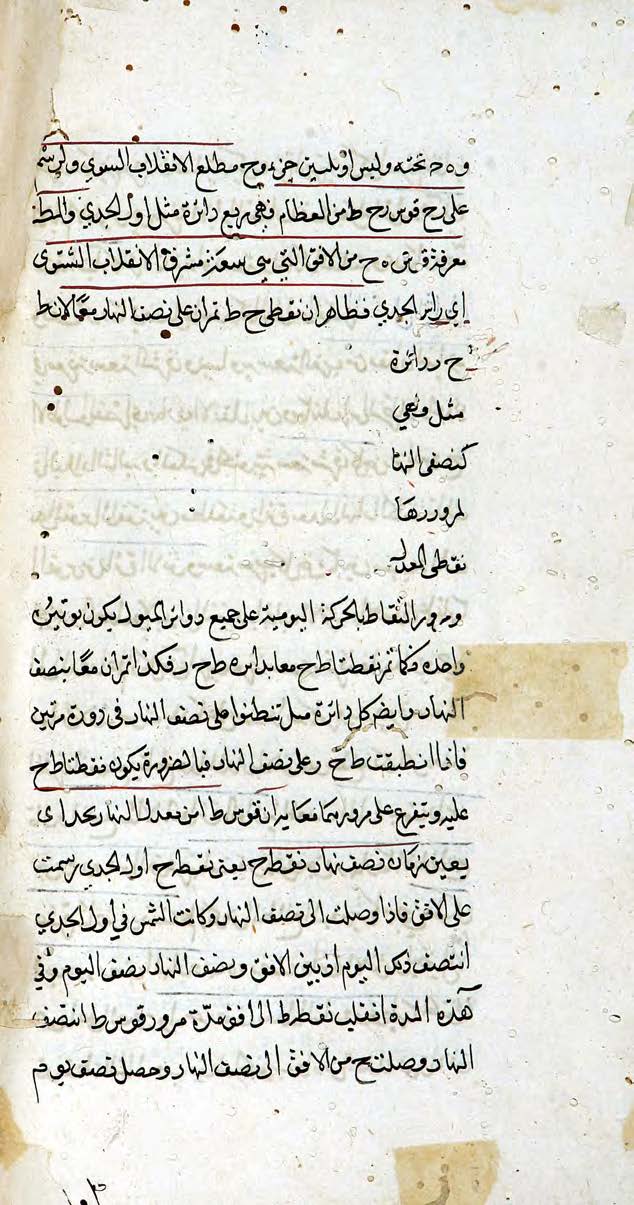 وه ح تحته وليس اوبلسين جزء وح مطلع الانقلاب الستوي ولنرسم
على رح قوس رح ط من العظام فهى ربع دائرة مثل اول الجدي والمط
معرفة قوس ه ح من الافق التي هي سعة مشرق الانقلاب الشتوى
اي راس الجدي فظاهر ان نقطتي ح ط تمران على نصف النهار معا لان ط
ح ر دائرة
مثل وهي
كنصف النها
لمرورها
نقطى المعدل
ومرور النقاط بالحركة اليومية على جميع دوائر الميول يكون بوتيرة
واحدة فكما تمر نقطتا ط ح معا بدايره ط ح ر فكذا تمران معا بنصف
النهار وايضم كل دائرة ميل تنطبق على نصف النهار فى دورة مرتين
فاذا انطبقت ط ح ر على نصف النهار فبالضرورة يكون نقطتا ط ح
عليه ويتفرع على مرورهما معا به ان قوس ط ا من معدل النهار يحد اى
يعين زمان نصف نهار نقطة ح يعنى نقطة ح اول الجدي رسمت
على الافق فاذا وصلت الى نصف النهار وكانت الشمس في اول الجدي
انتصف ذلك اليوم اذ بين الافق ونصف النهار نصف اليوم وفي
هذه المدة انقلب نقطة ط الى افق مدة مرور قوس ط ا نتصف
النهار وصلت ح من الافق الى نصف النهار وحصل نصف يوم